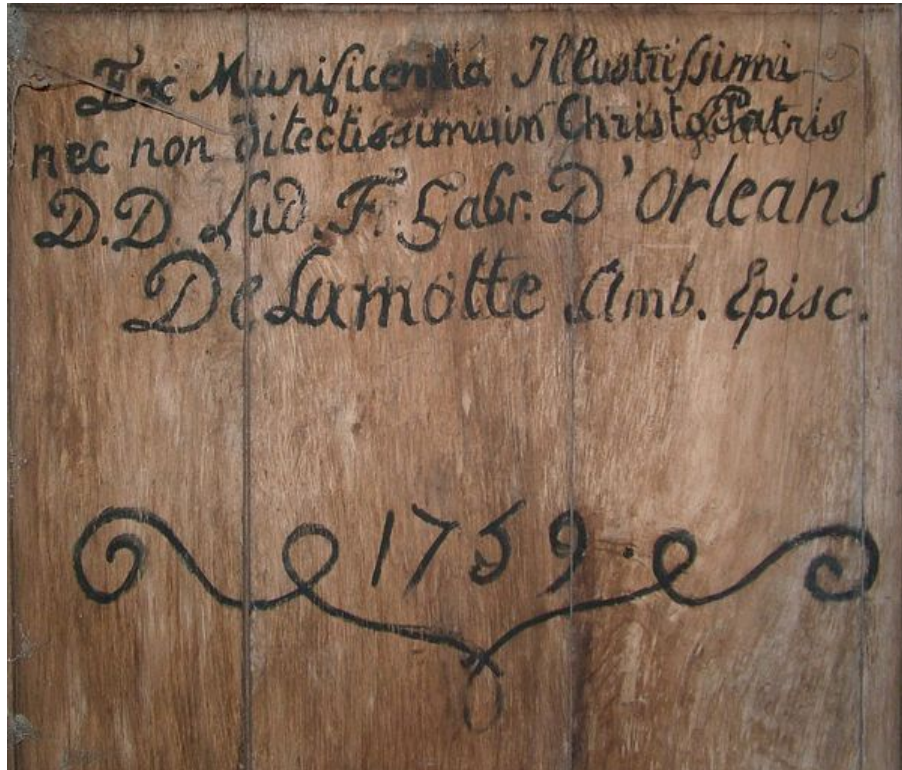 Ex Munificentia Illustrissimi
nec non Ditectissimi in Christo Patris
D.D. Lud. F. Gabr. D'Orleans
DeLamotte Amb. Episc.
1759.